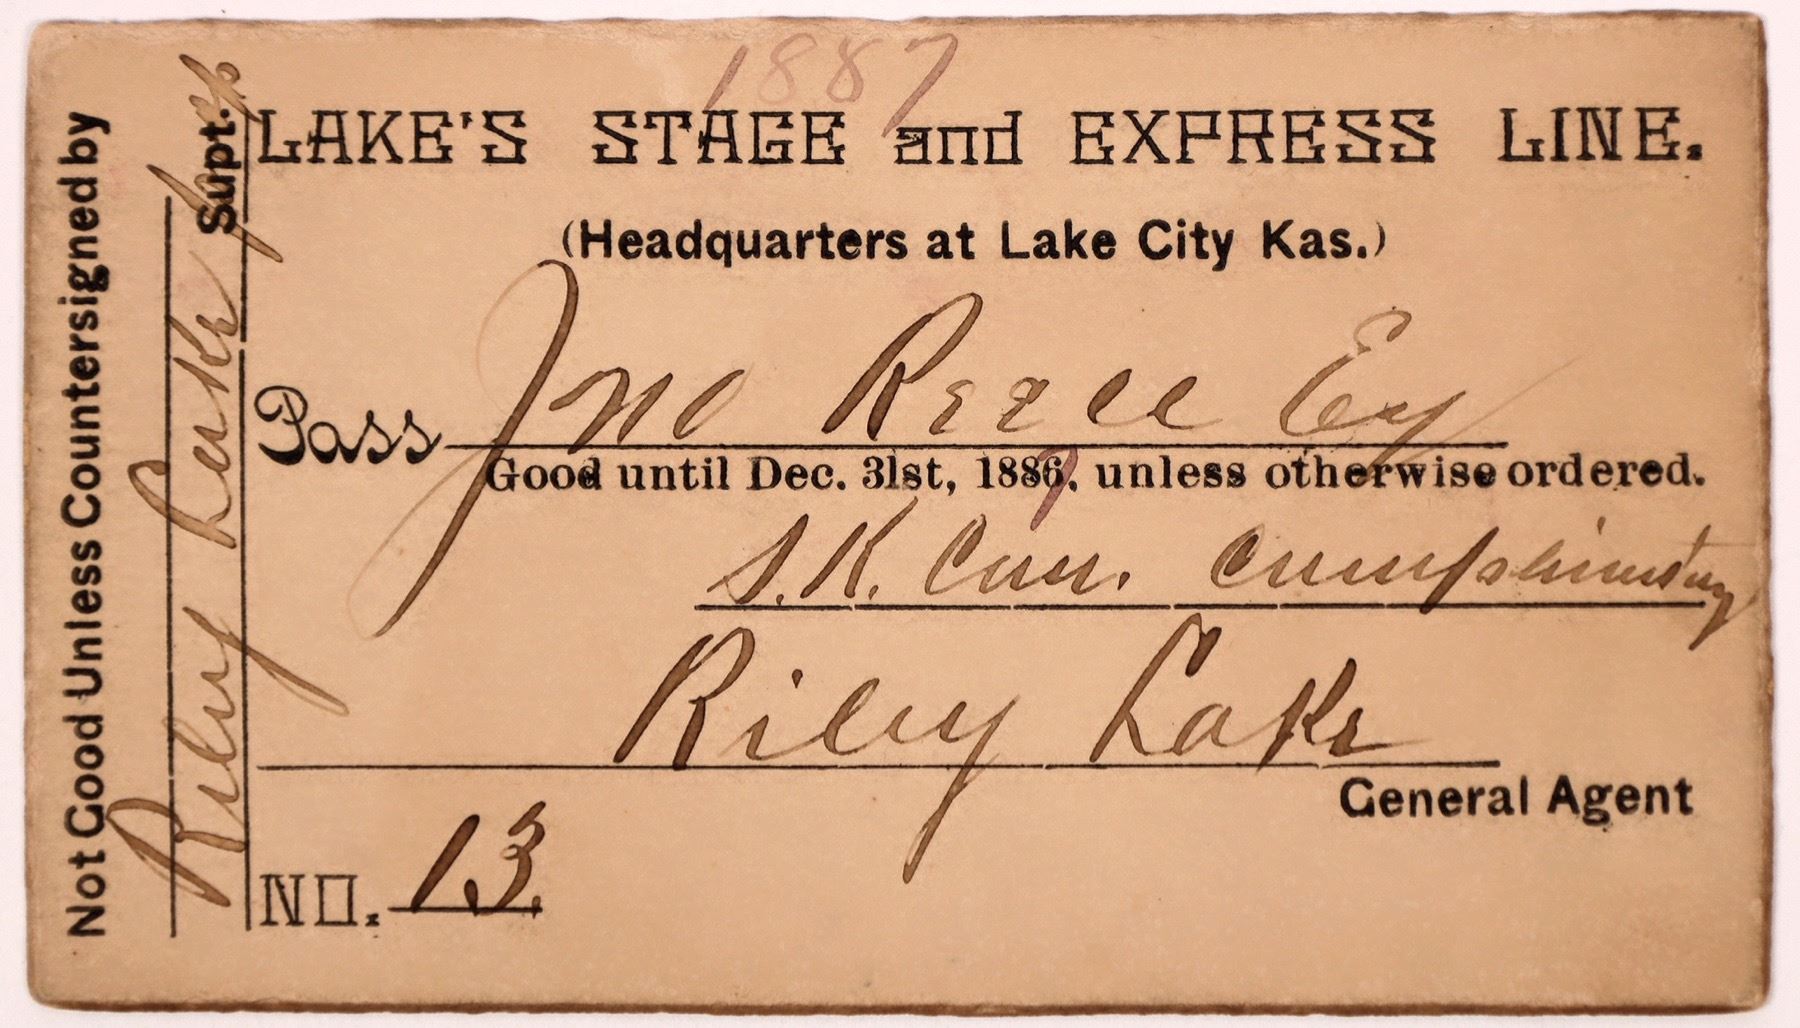 1887
LAKE'S STAGE and EXPRESS LINE.
(Headquarters at Lake City Kas.)
Pass Jno
Good until Dec. 31st, 1887, unless otherwise ordered.
S.K.
Riley Lake
General Agent
NO. 13.
Not Good Unless Countersigned by
Riley Lake Supt.